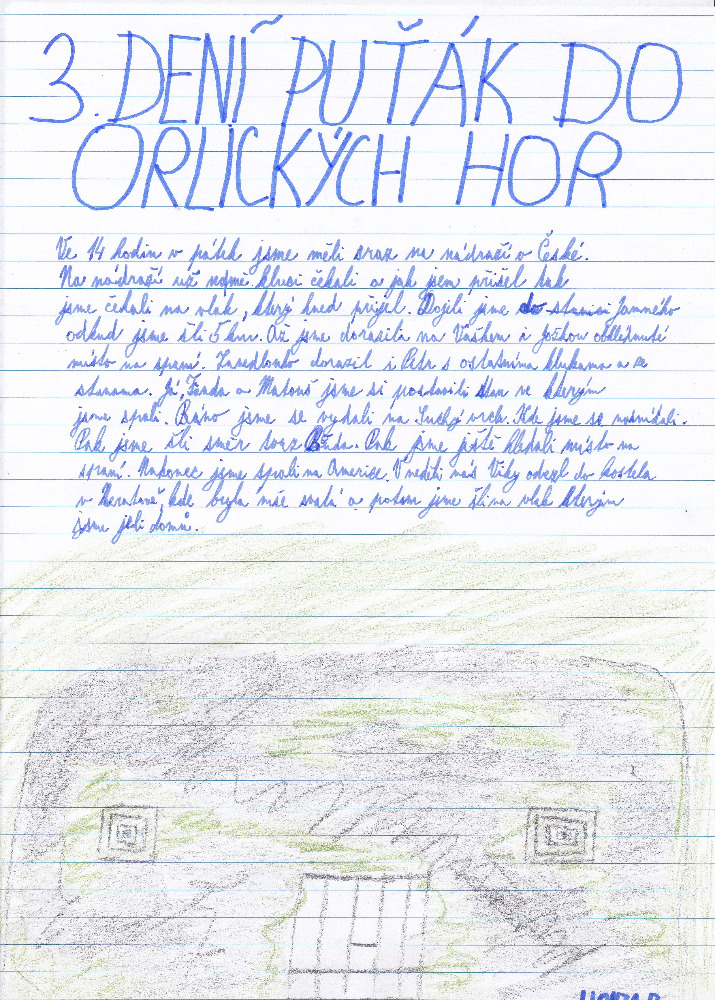 3. DENÍ PUŤÁK DO
ORLICKÝCH HOR
Ve 14 hodin v pátek jsme měli sraz na nádraží v České.
Na nádraží už kluci čekali a jak jsem přišel tak
jsme čekali na vlak, který hned přijel. Dojili jsme do stanice Jamného
odkud jsme šli 5 km. Až jme dorazili na
místo na spaní. Zanedlouho dorazil i Petr s ostatníma klukama a se
stanama. Já, Fanda a Matouš jsme si postavili stan ve kterým
jsme spali. Ráno jsme se vydali na Suchý vrch. Kde jsme se nasnídali.
Pak jsme šli směr tvrz Bouda. Pak jsme ještě hledali místo na
spaní. Nakonec jsme spali na Americe. V neděli nás Víky odvezl do kostela
v kde byla mše svatá a potom jsme šli na vlak kterým
jsme jeli domů.
HONZA B